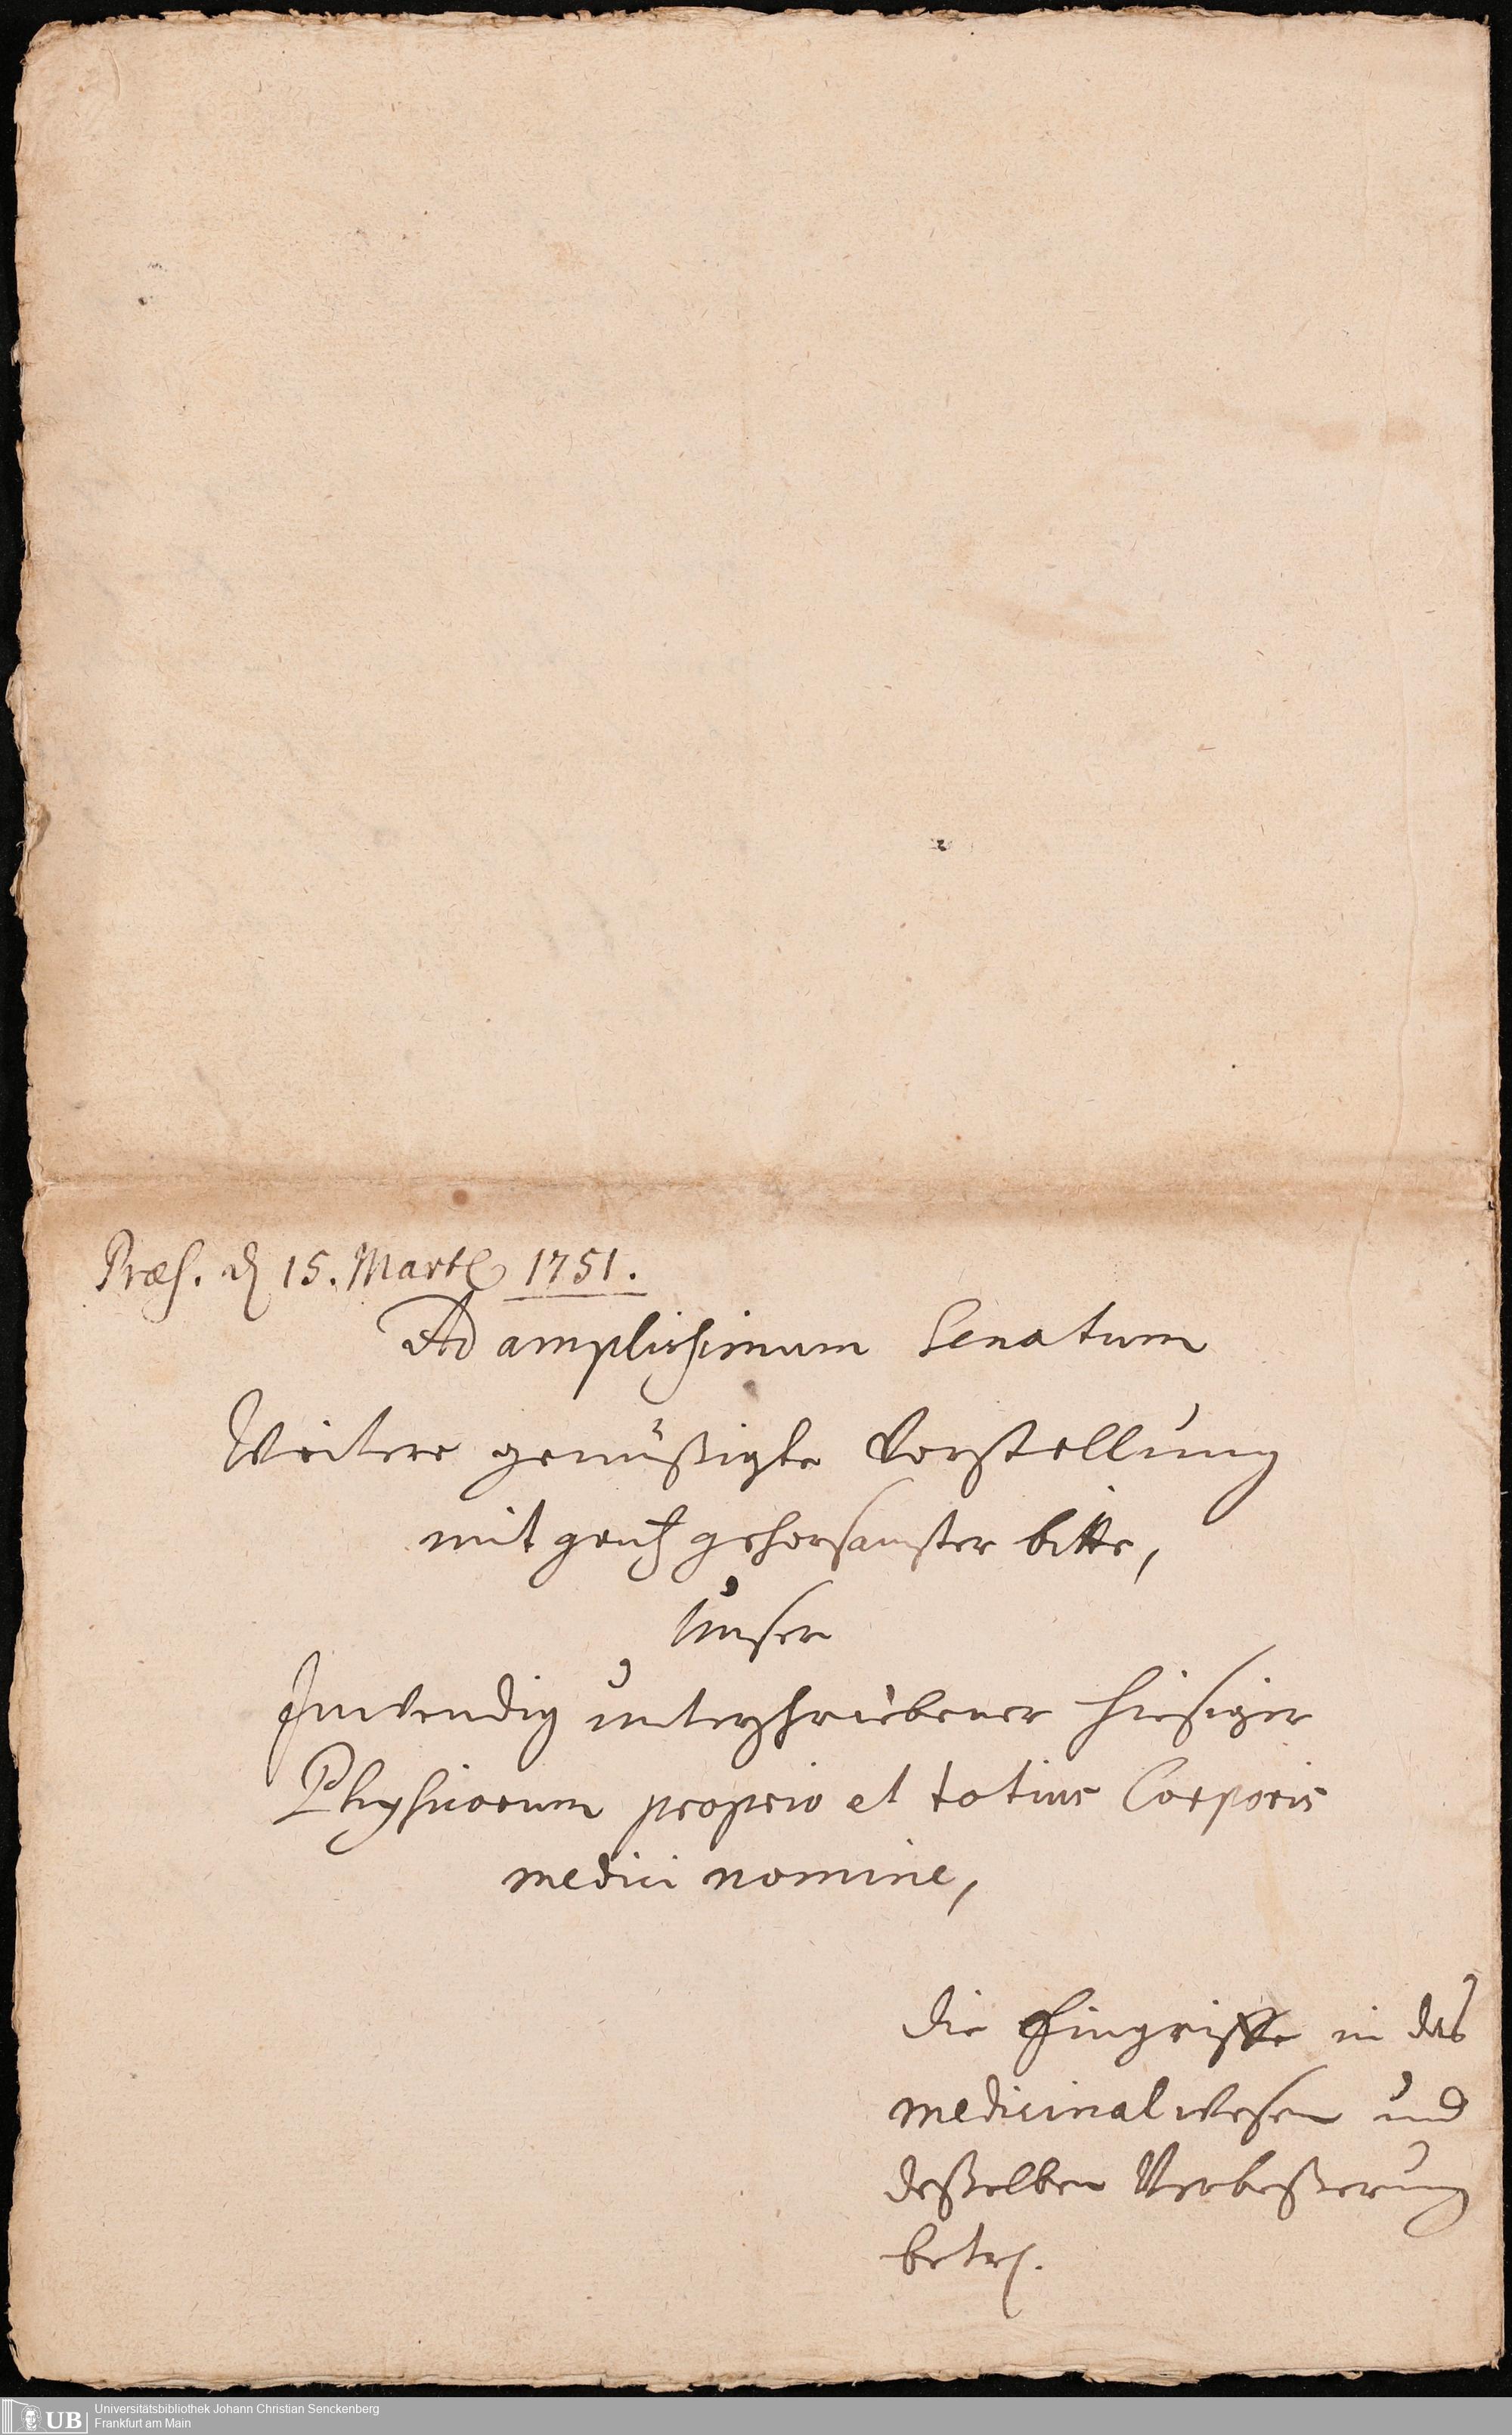 Præs. d 15. Marty 1751.
Ad amplissimum Senatum
Weitere gemüßigte Vorstellung
mit gehorsamster bitte,
Unser
Inwendig unterschriebener hiesiger
Physicorum proprio et totius Corporis
medici nomine,
die Eingriffe in das
medicinal wesen und
deßelben Verbeßerung
betr.
UB
Universitätsbibliothek Johann Christian Senckenberg
Frankfurt am Main